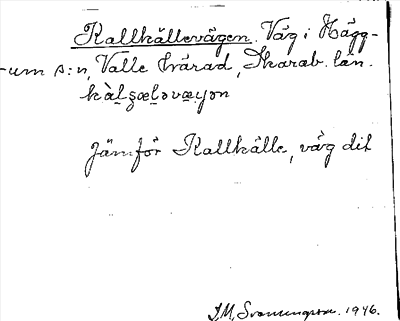 Kallkällevägen. Väg i Hägg-
-um s:n, Valle härad, Skarab. län.
kàlʂælǝvæyǝn
Jämför Kallkälle, väg dit
I.M. Svanungsson. 1946.